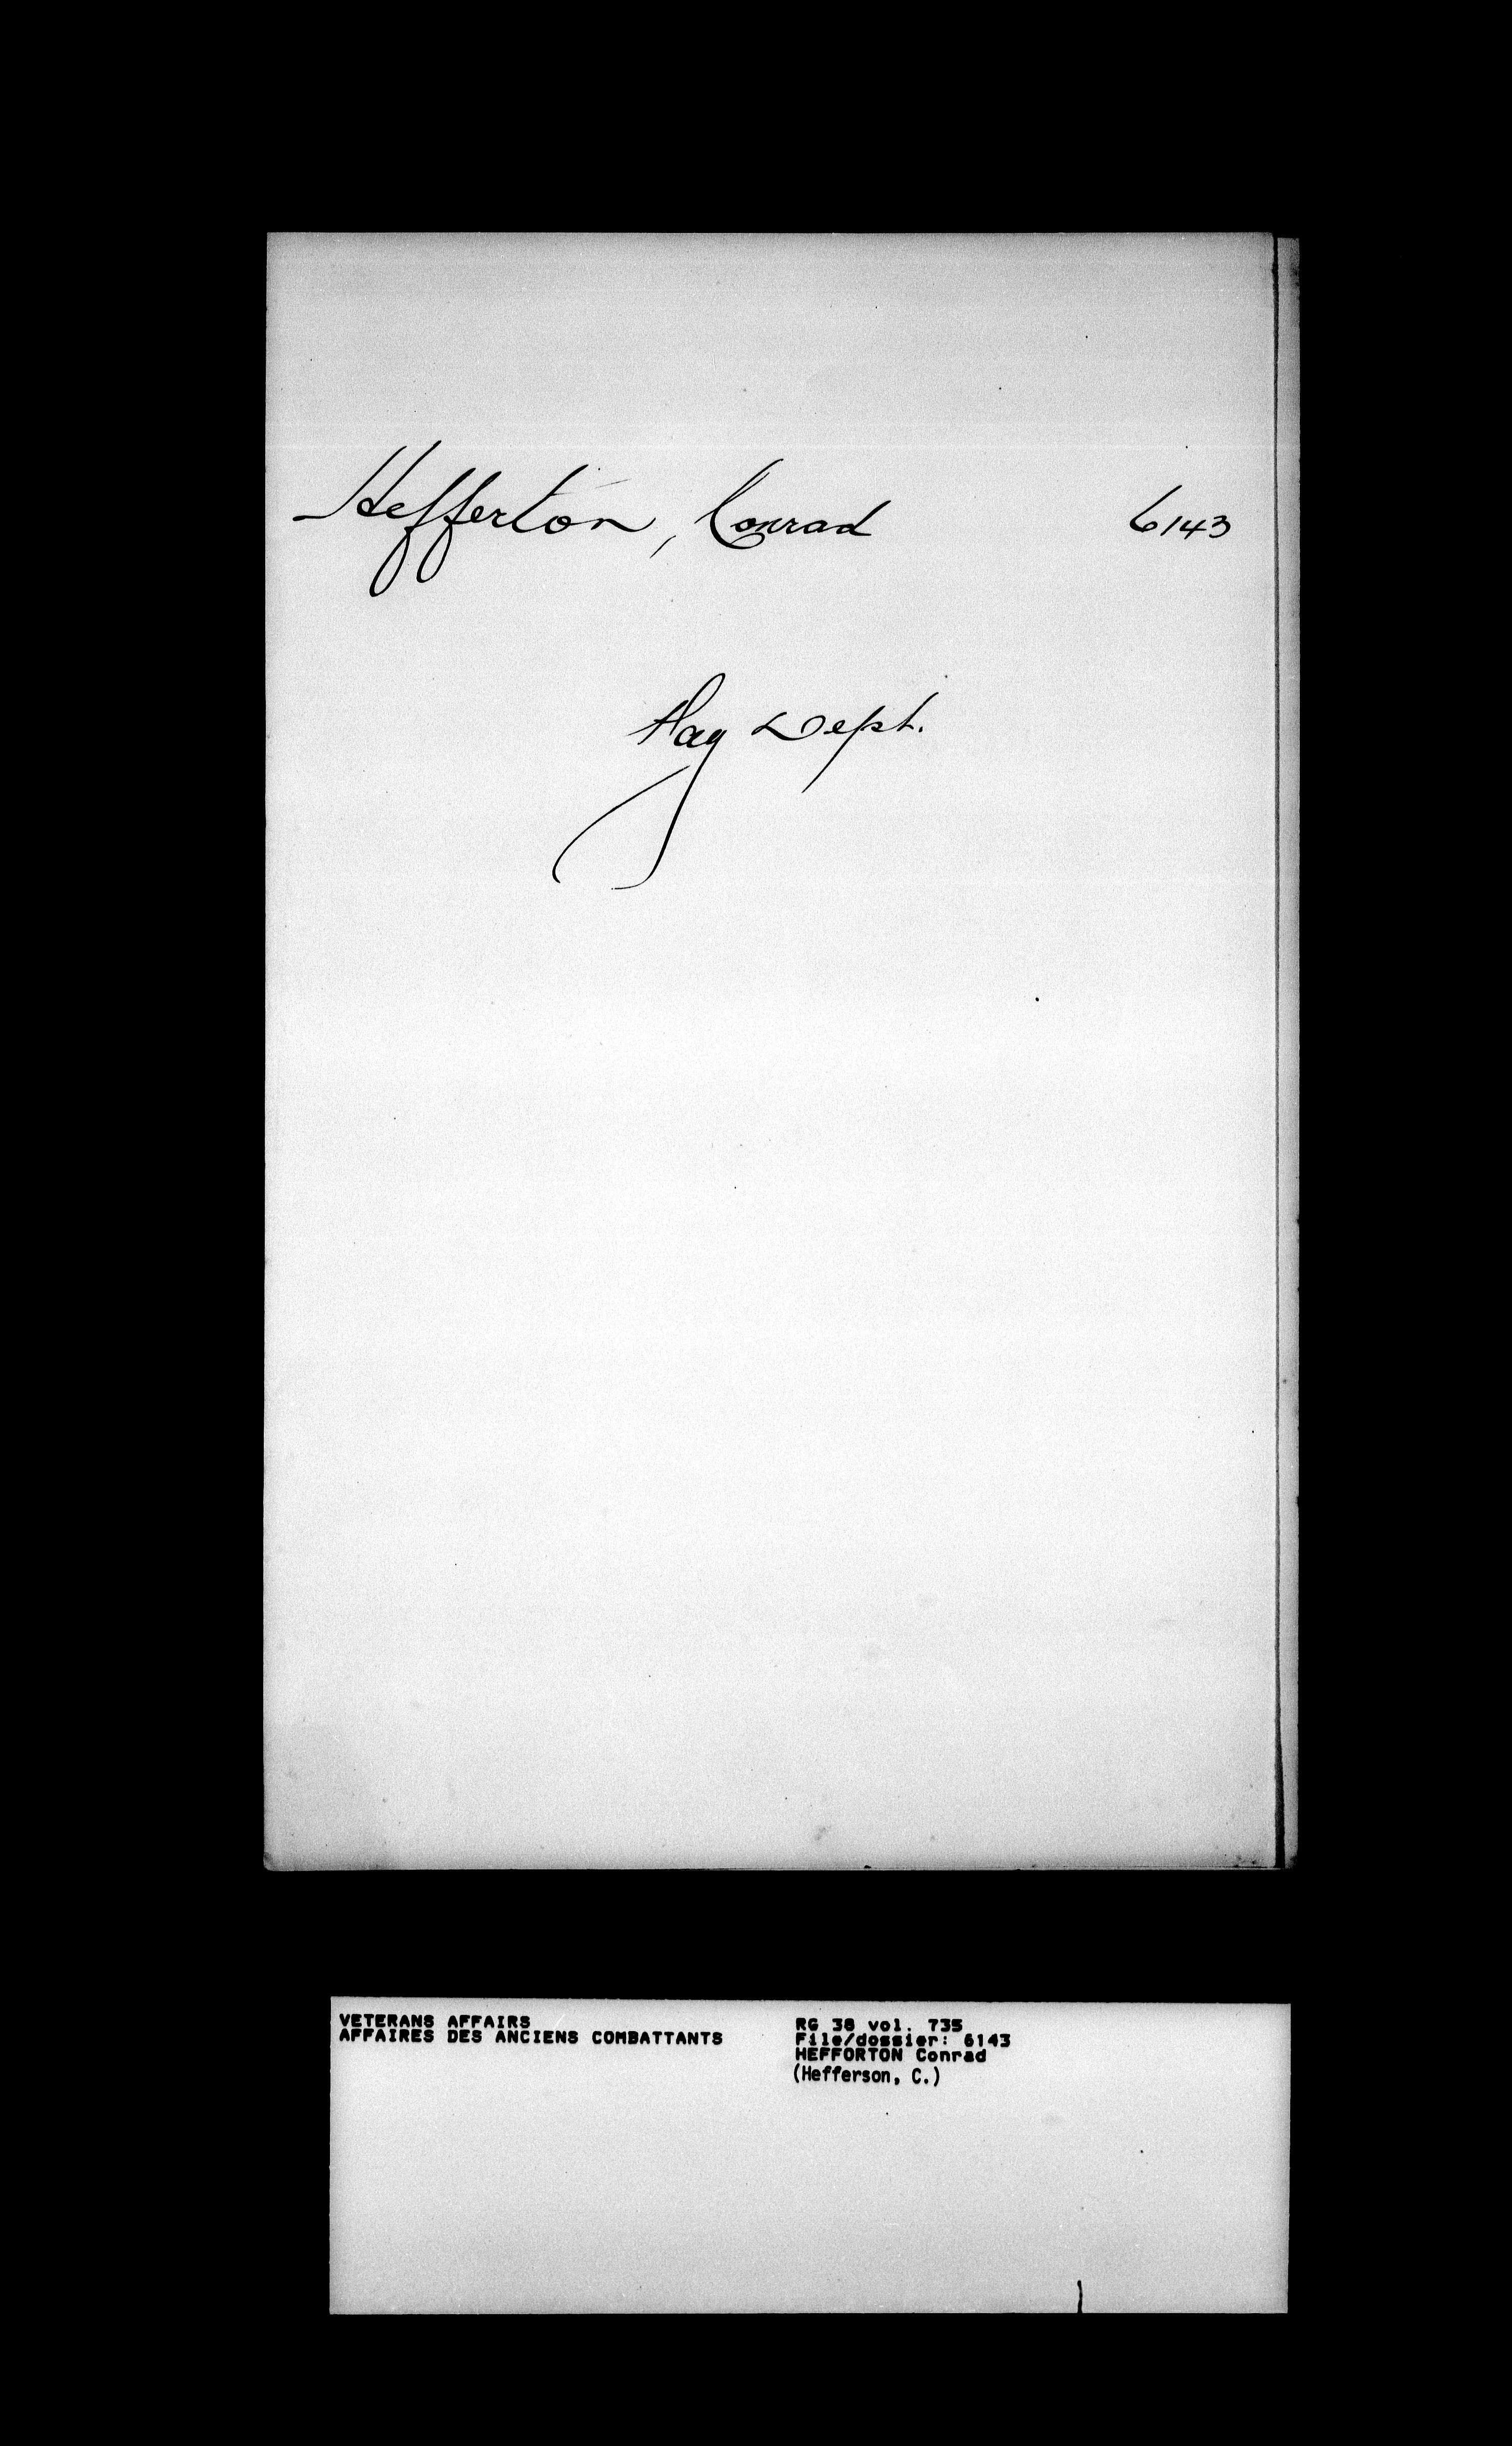 Hefferton, Conrad 6143
Pay Dept.
VETERANS AFFAIRS
AFFAIRES DES ANCIENS COMBATTANTS
RG 38 vol. 735
File/dossier: 6143
HEFFORTON Conrad
(Hefferson, C.)